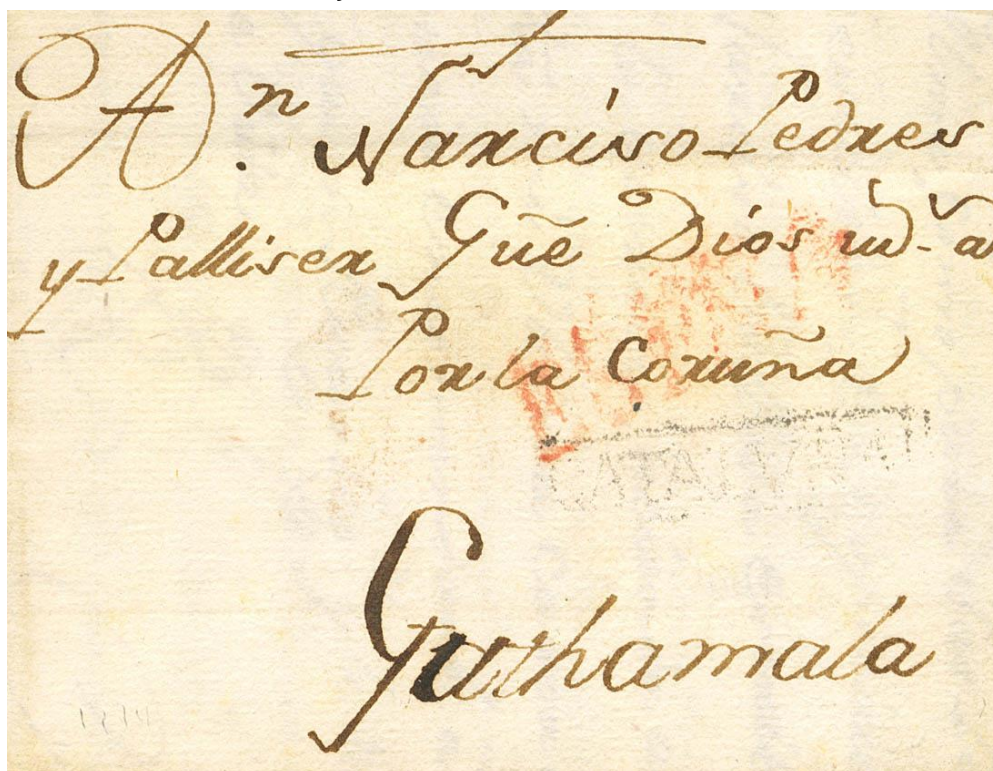 A Dn. Narciso Pedres
y Palliser Gũe Dios md. a
Por la Coruña
Guathamala